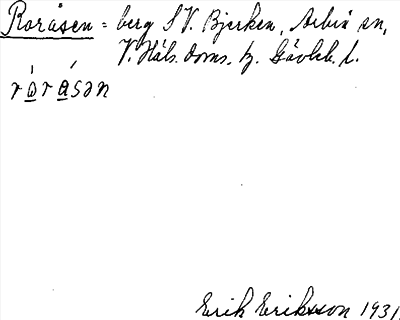 Roråsen = berg SV. Bjerken, Arbrå sn,
V. Häls. doms. tg. Gävleb. l.
ròrásən
Erik Eriksson 1931.